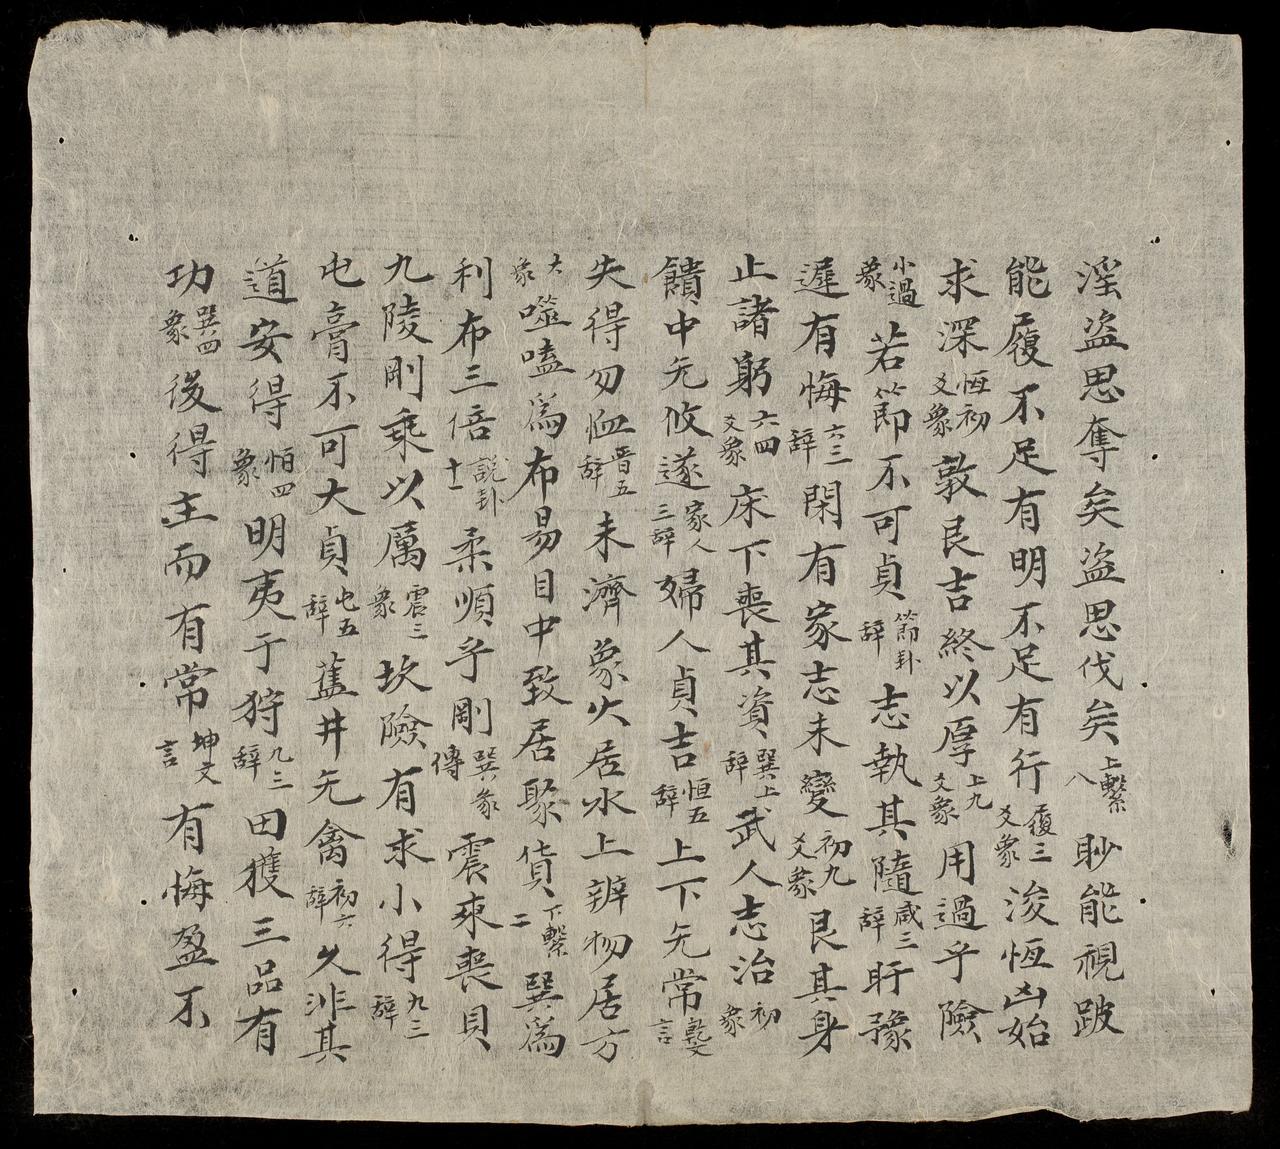 淫盗思奪矣盗思伐矣上繫八眇能視跛
能履不足有明不足有行履三爻象浚恆凶始
求深恆初爻象敦艮吉終以厚上九爻象用過乎險
小過彖若節不可貞節卦辞志執其隨咸三辞盱豫
遲有悔六三辞閑有家志未變初九爻象艮其身
止諸躬六四爻象床下喪其資巽上辞武人志治初象
饋中无攸遂家人三辞婦人貞吉恒五辞上下无常乾文言
失得勿恤晋五辞未濟象火居水上辨物居方
大象噬嗑為布易日中致居聚貨下繫二巽為
利布三倍說卦十一柔順乎剛巽彖傳震來喪貝
九陵剛乘以厲震三象坎險有求小得九二辞
屯膏不可大貞屯五辞舊井无禽初六辞久非其
道安得恒四象明夷于狩九三辞田獲三品有
功巽四象後得主而有常坤文言有悔盈不